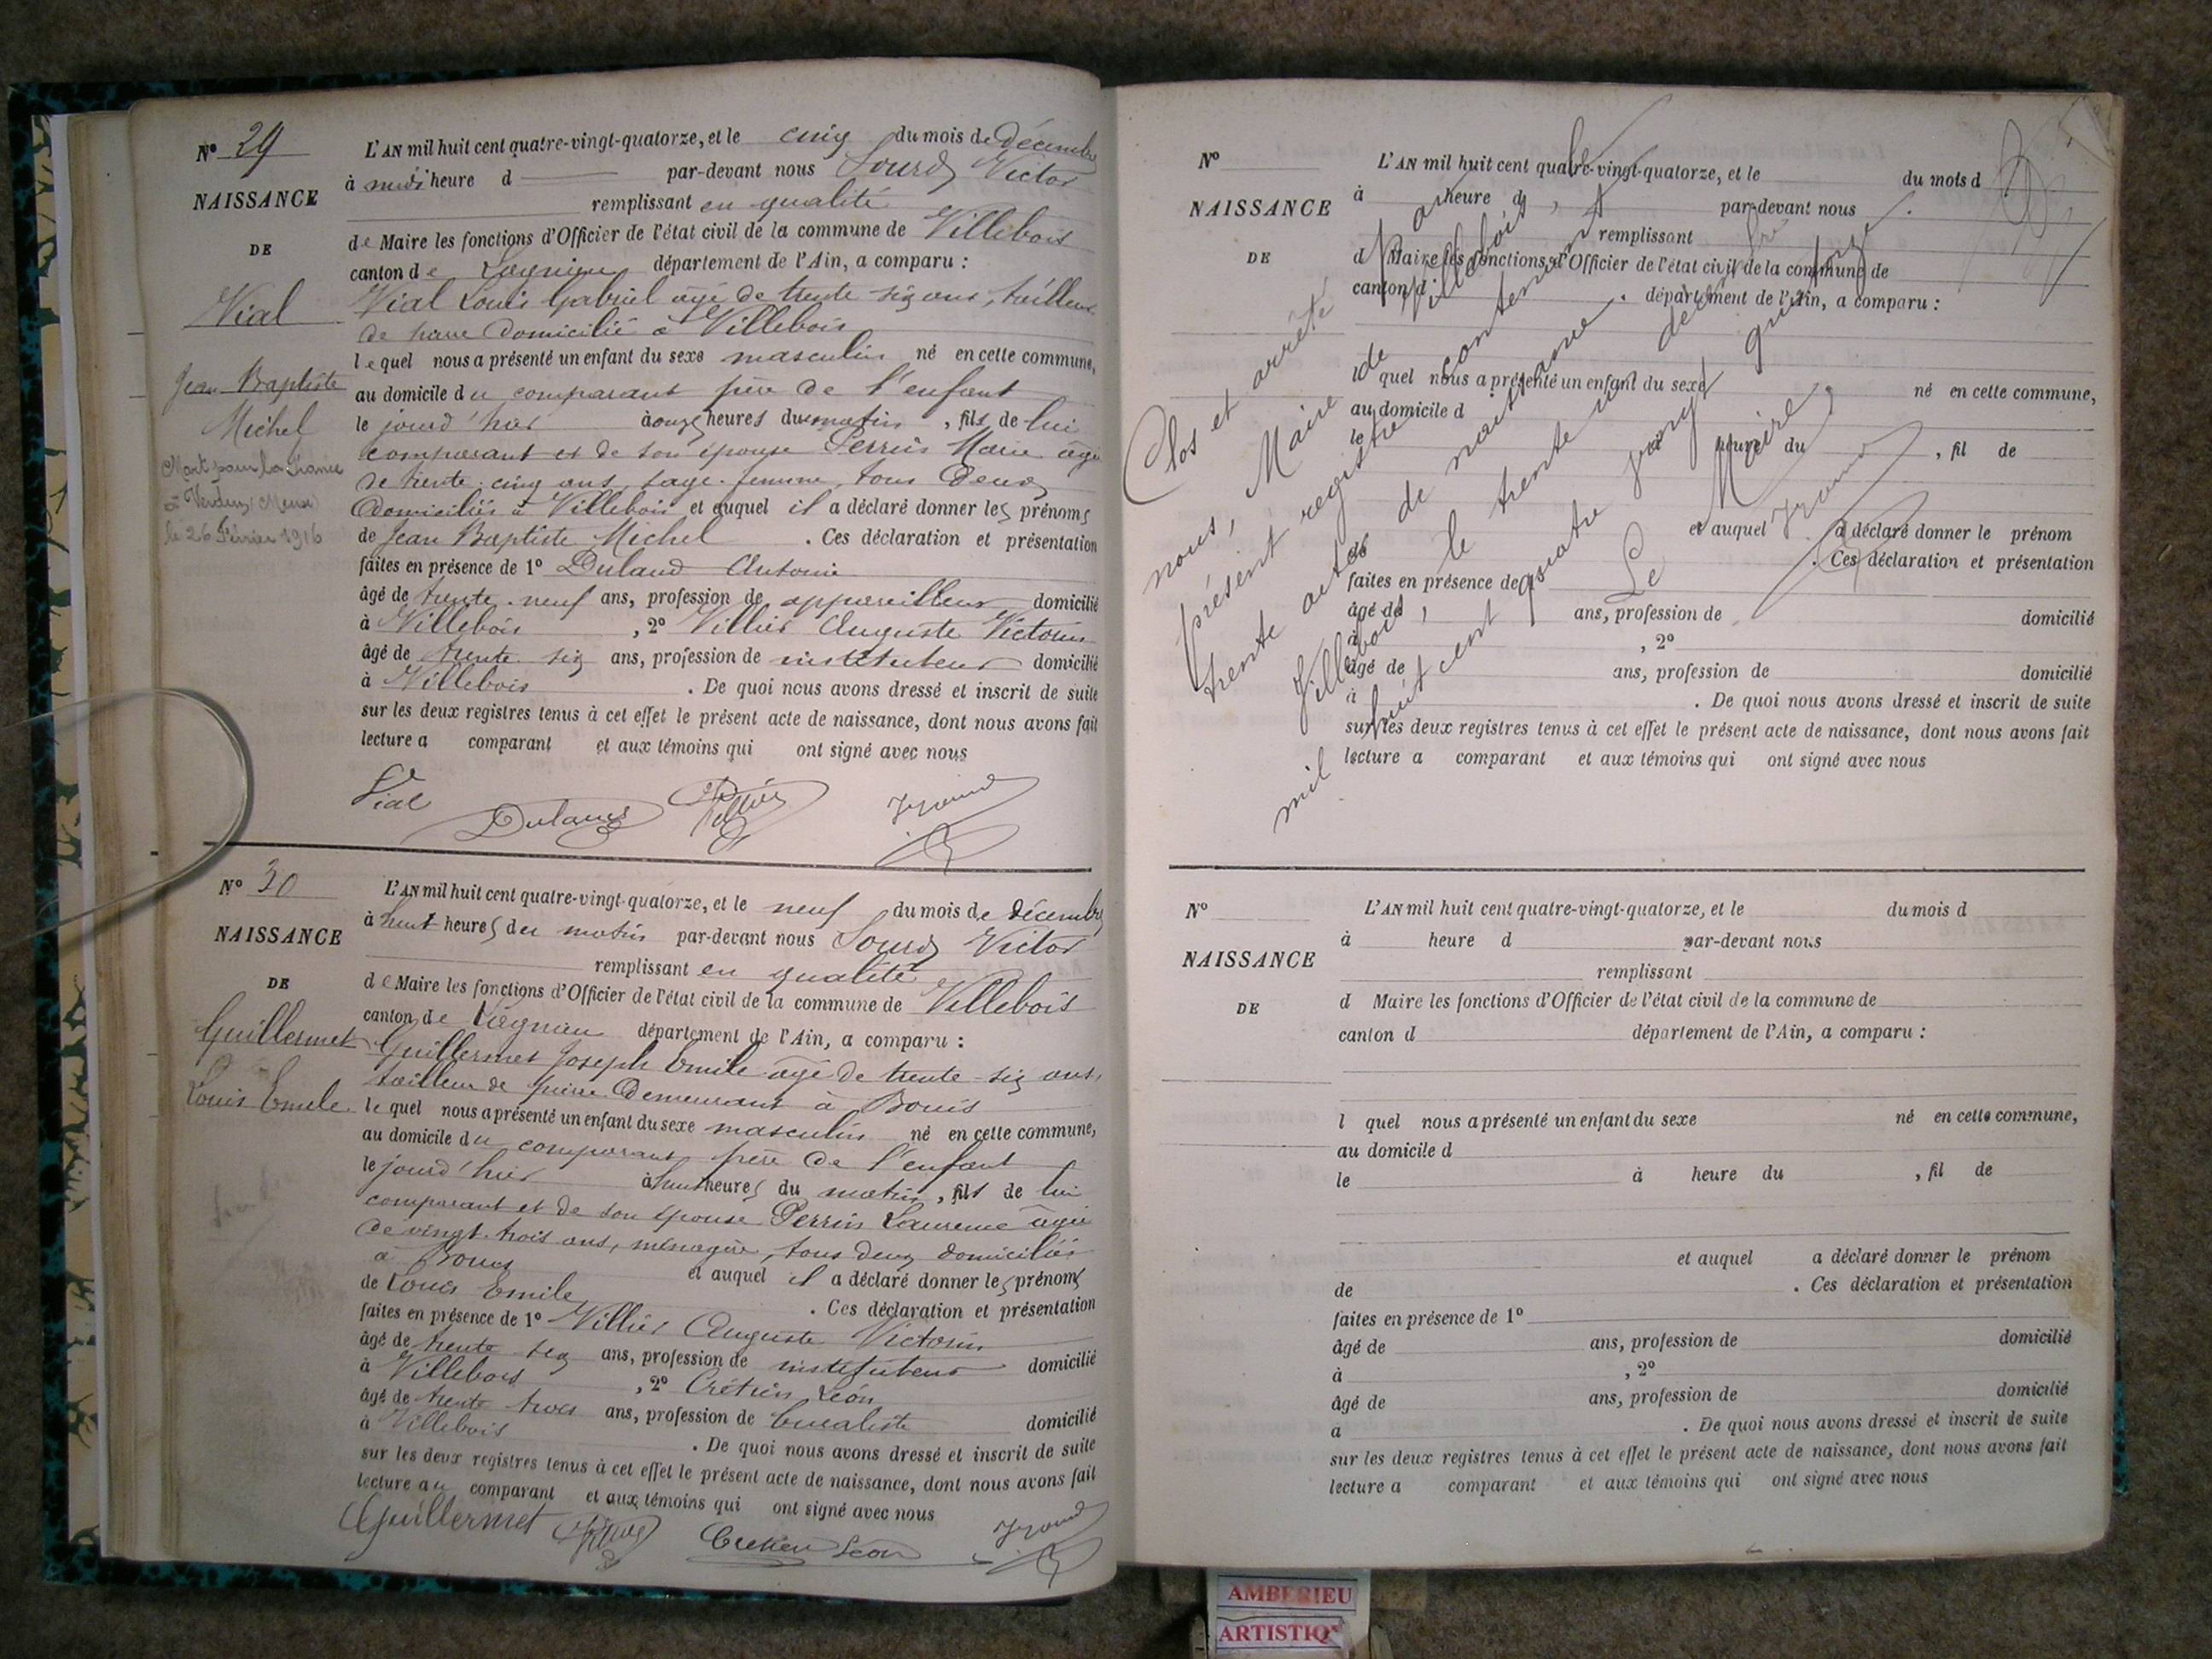 N° 29
NAISSANCE
DE
Vial
Jean Baptiste
Michel
Mort pour la France
à Verdun (Meuse)
le 26 Février 1916
L'AN mil huit cent quatre-vingt-quatorze, et le cinq du mois de décembre
à midi heure d par-devant nous Victor
remplissant en qualité
de Maire les fonctions d'Officier de l'état civil de la commune de Villebois
canton de Lagnieu département de l'Ain, a comparu :
Vial Louis Gabriel âgé de trente six ans, tailleur
de domicilié à Villebois
lequel nous a présenté un enfant du sexe masculin né en cette commune,
au domicile du comparant père de l'enfant
le jourd'hier à onze heures du matin, fils de lui
comparant et de son épouse Perrin Marie âgée
de trente-cinq ans, sage-femme, tous deux
domiciliés à Villebois et auquel il a déclaré donner les prénoms
de Jean Baptiste Michel . Ces déclaration et présentation
faites en présence de 1° Duland Antoine
âgé de trente-neuf ans, profession de appareilleur domicilié
à Villebois , 2° Villier Auguste Victorin
âgé de trente six ans, profession de instituteur domicilié
à Villebois . De quoi nous avons dressé et inscrit de suite
sur les deux registres tenus à cet effet le présent acte de naissance, dont nous avons fait
lecture a comparant et aux témoins qui ont signé avec nous
Vial Duland Villier
N° 30
NAISSANCE
DE
Guillermet
Louis Emile
L'AN mil huit cent quatre-vingt-quatorze, et le neuf du mois de décembre
à huit heures du matin par-devant nous Victor
remplissant en qualité
de Maire les fonctions d'Officier de l'état civil de la commune de Villebois
canton de Lagnieu département de l'Ain, a comparu :
Guillermet Joseph Emile âgé de trente-six ans,
tailleur de pierre demeurant à Bouis
lequel nous a présenté un enfant du sexe masculin né en cette commune,
au domicile du comparant père de l'enfant
le jourd'hier à huit heures du matin, fils de lui
comparant et de son épouse Perrin Laurence âgée
de vingt-trois ans, ménagère, tous deux domiciliés
à Bouis et auquel il a déclaré donner les prénoms
de Louis Emile . Ces déclaration et présentation
faites en présence de 1° Villier Auguste Victorin
âgé de trente six ans, profession de instituteur domicilié
à Villebois , 2° Crétien Léon
âgé de trente trois ans, profession de buraliste domicilié
à Villebois . De quoi nous avons dressé et inscrit de suite
sur les deux registres tenus à cet effet le présent acte de naissance, dont nous avons fait
lecture au comparant et aux témoins qui ont signé avec nous
Guillermet Villier Cretien Leon
N°
NAISSANCE
DE
L'AN mil huit cent quatre-vingt-quatorze, et le du mois d
à heure d par-devant nous
remplissant
d Maire les fonctions d'Officier de l'état civil de la commune de
canton d département de l'Ain, a comparu :
l quel nous a présenté un enfant du sexe né en cette commune,
au domicile d
le à heure du , fil de
et auquel a déclaré donner le prénom
de . Ces déclaration et présentation
faites en présence de
âgé de ans, profession de domicilié
à , 2°
âgé de ans, profession de domicilié
à . De quoi nous avons dressé et inscrit de suite
sur les deux registres tenus à cet effet le présent acte de naissance, dont nous avons fait
lecture a comparant et aux témoins qui ont signé avec nous
Clos et arrêté par
nous, Maire de Villebois, le
présent registre contenant
trente actes de naissance.
Villebois, le trente un décembre
mil huit cent quatre vingt quatorze.
Le Maire,
N°
NAISSANCE
DE
L'AN mil huit cent quatre-vingt-quatorze, et le du mois d
à heure d par-devant nous
remplissant
d Maire les fonctions d'Officier de l'état civil de la commune de
canton d département de l'Ain, a comparu :
l quel nous a présenté un enfant du sexe né en cette commune,
au domicile d
le à heure du , fil de
et auquel a déclaré donner le prénom
de . Ces déclaration et présentation
faites en présence de 1°
âgé de ans, profession de domicilié
à , 2°
âgé de ans, profession de domicilié
à . De quoi nous avons dressé et inscrit de suite
sur les deux registres tenus à cet effet le présent acte de naissance, dont nous avons fait
lecture a comparant et aux témoins qui ont signé avec nous
AMBERIEU
ARTISTIQ